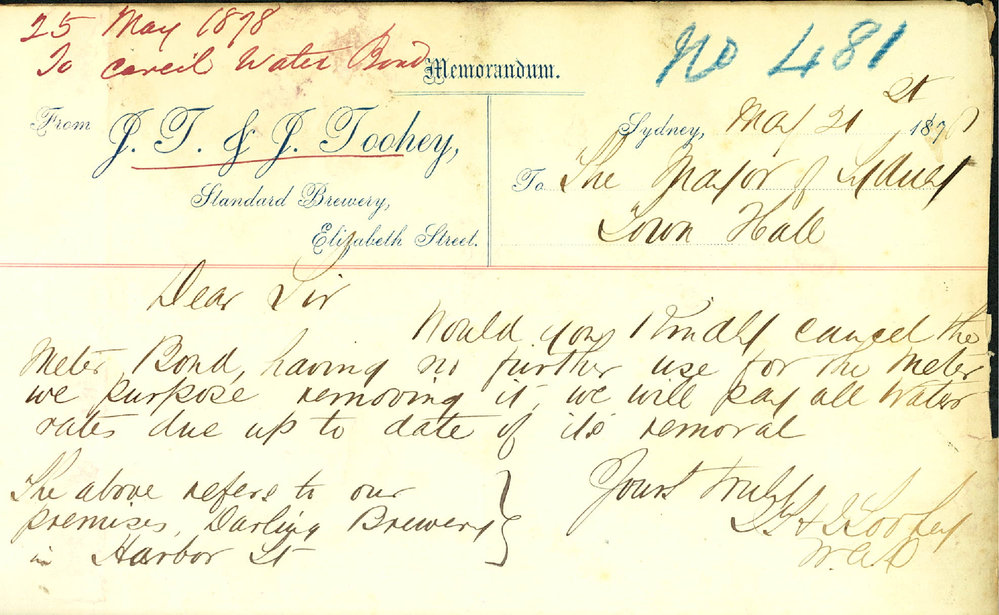 25 May 1878
To cancil Water Bond
No 481
Memorandum.
From J. T. & J. Toohey,
Standard Brewery,
Elizabeth Street.
Sydney, May 21st 1878
To The Mayor of Sydney
Town Hall
Dear Sir
Would you Kindly cancel the
Meter Bond, having no further use for the Meter
we purpose removing it, we will pay all Water
rates due up to date of its removal
Yours truly
J T & J Toohey
The above refers to our
premises, Darling Brewery
in Harbor St